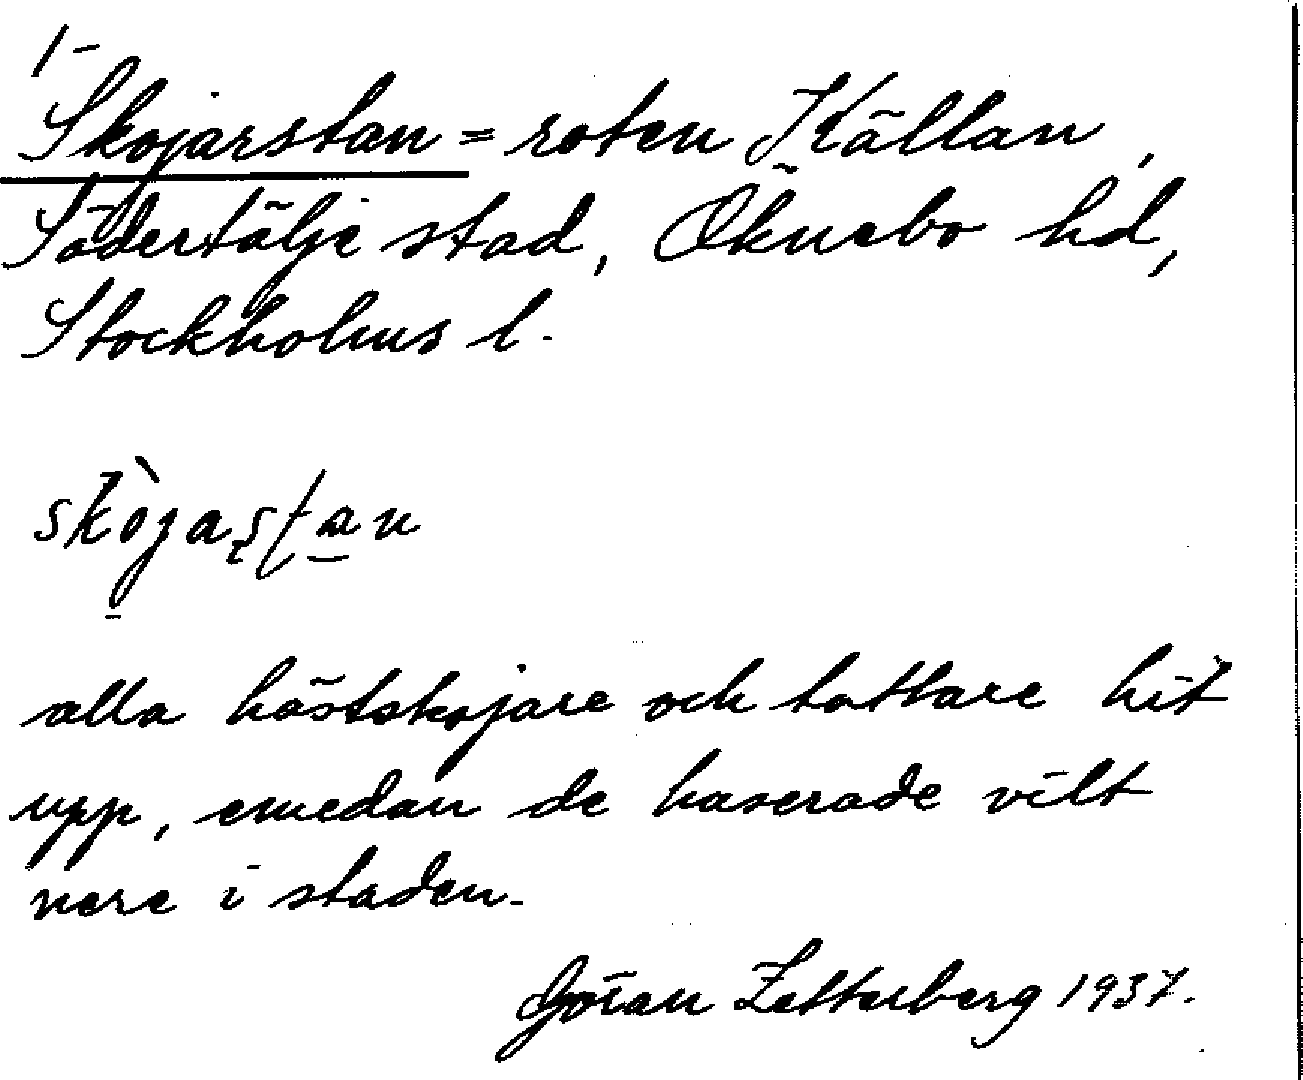 1-
Skojarstan = roten Källan,
Södertälje stad, Öknebo hd,
Stockholms l.
skòjaştan
alla hästskojare och tattare hit
upp, emedan de haserade vilt
nere i staden.
Göran Zetterberg 1937.